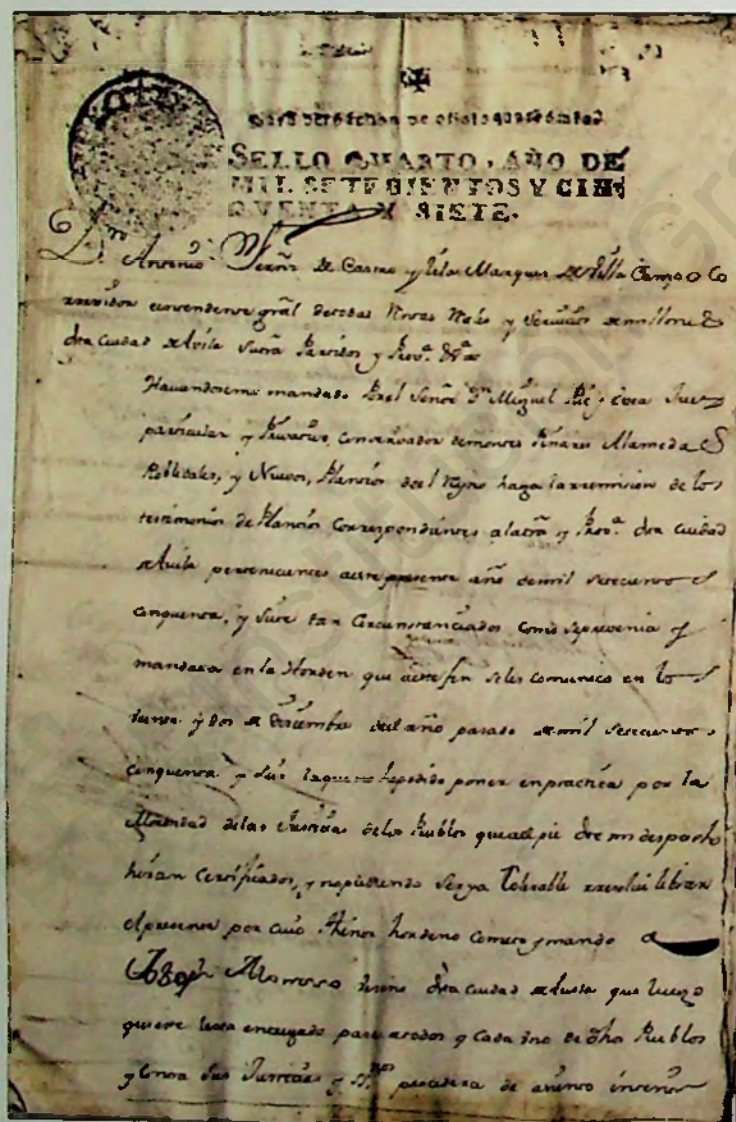 PARA DESPACHOS DE OFICIO QUATRO MRS
SELLO QUARTO, AÑO DE
MIL SETECIENTOS Y CIN
QVENTA Y SIETE.
Dn. Antonio de Castro y Marques de Villa Campo Co
rrexidor intendente gral de todas Rentas Rles y Servicios de millones de
dha ciudad de Avila su trra Partidos y Prova. &a
Haviendoseme mandado por el Señor Dn Miguel Juez
particular y Privativo, Conservador de montes Pinares Alamedas
Robledales, y Nuevos, Plantios del Reyno haga la remision de los
testimonios de Plantios Correspondientes a la trra y Prova. dha ciudad
de Avila pertenecientes a este presente año de mil setecientos
cinquenta, y siete tan Circunstanciados como se prevenia y
mandava en la Horden que a este fin se les comunico en
y dos de Diciembre del año pasado de mil setecientos
cinquenta y seis poner en practica por la
Morosidad de las Justicias de los Pueblos que al pie de este mi despacho
hiran Certificados, y no pudiendo ser ya tolerable resolvi librar
el presente por cuio thenor hordeno cometo y mando a
Joseph vezino dha ciudad de Avila que luego
que le sea entregado pase a todos y cada uno de dhos Pueblos
y contra sus Justicias y